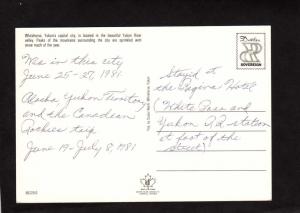 Whitehorse, Yukon's capital city, is located in the beautiful Yukon River
valley. Peaks of the mountains surrounding the city are sprinkled with
snow much of the year.
Was in this city
June 25-27, 1981
Alaska Yukon Territory
and the Canadian
Rockies trip
June 19-July 8, 1981
SOVEREIGN
Stayed at
the Regina Hotel
(White Pass and
Yukon RR station
at foot of the
street)